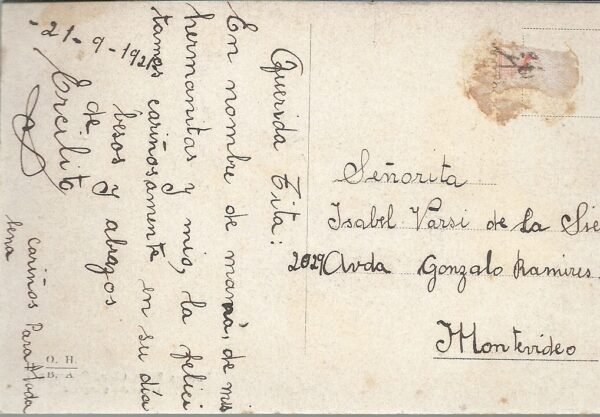 Querida Tita:
En nombre de mamá, de mis
hermanitas y mio, la felici
tamos cariñosamente en su día
besos y abrazos
de
Ercilito
-21-9-192
cariños Para
lena
O. H.
B. A
Señorita
Isabel Varsi de la Sie
2029 Avda Gonzalo Ramires.
Montevideo